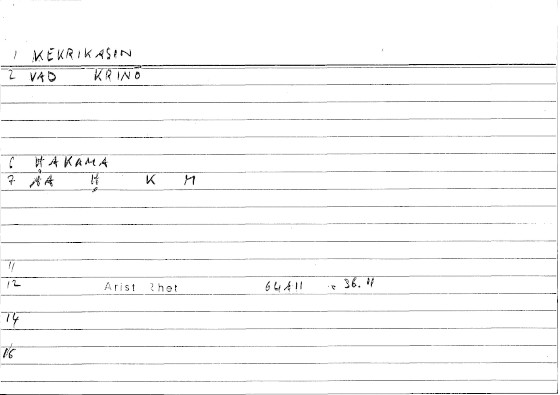 1 KEKRIKASIN
2 VAD KRINO
6 ḤAKAMA
7 AA Ḥ K M
11
12 Arist Rhet 64A11 = 36.11
14
16